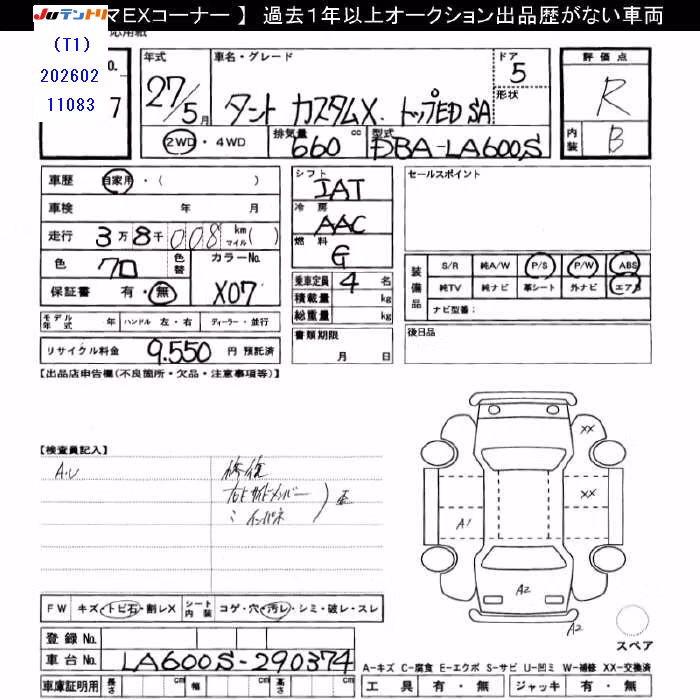 JUテントリ マEXコーナー 】 過去1年以上オークション出品歴がない車両
応用紙
(T1)
202602
11083
No.
7
年式
27/5月
車名・グレード
タント カスタムX. トップED SA
ドア
5
形状
2WD・4WD
排気量
660 cc
型式
DBA-LA600S
評価点
R
内装
B
車歴
自家用・( )
車検 年 月
走行 3万8千008 km マイル( )
色
70
色替
カラーNo.
X07
保証書 有・無
モデル年式 年 ハンドル 左・右 ディーラー・並行
リサイクル料金 9.550 円 預託済
シフト
IAT
冷房
AAC
燃料
G
乗車定員 4 名
積載量 kg
総重量 kg
書類期限
月 日
セールスポイント
装備品
S/R 純A/W P/S P/W ABS
純TV 純ナビ 革シート 外ナビ エアB
ナビ型番:
後日品
【出品店申告欄(不良箇所・欠品・注意事項等)】
【検査員記入】
A.U
修復
右ヒサイドメンバー
〃 インパネ
XX
XX
A1
A2
A2
スペア
FW キズ・トビ石・割レX シート内装 コゲ・穴・汚レ・シミ・破レ・スレ
登録 No.
車台 No. LA600S-290374
車庫証明用 長さ cm 幅 cm 高さ cm
A-キズ C-腐食 E-エクボ S-サビ U-凹ミ W-補修 XX-交換済
工具 有・無 ジャッキ 有・無